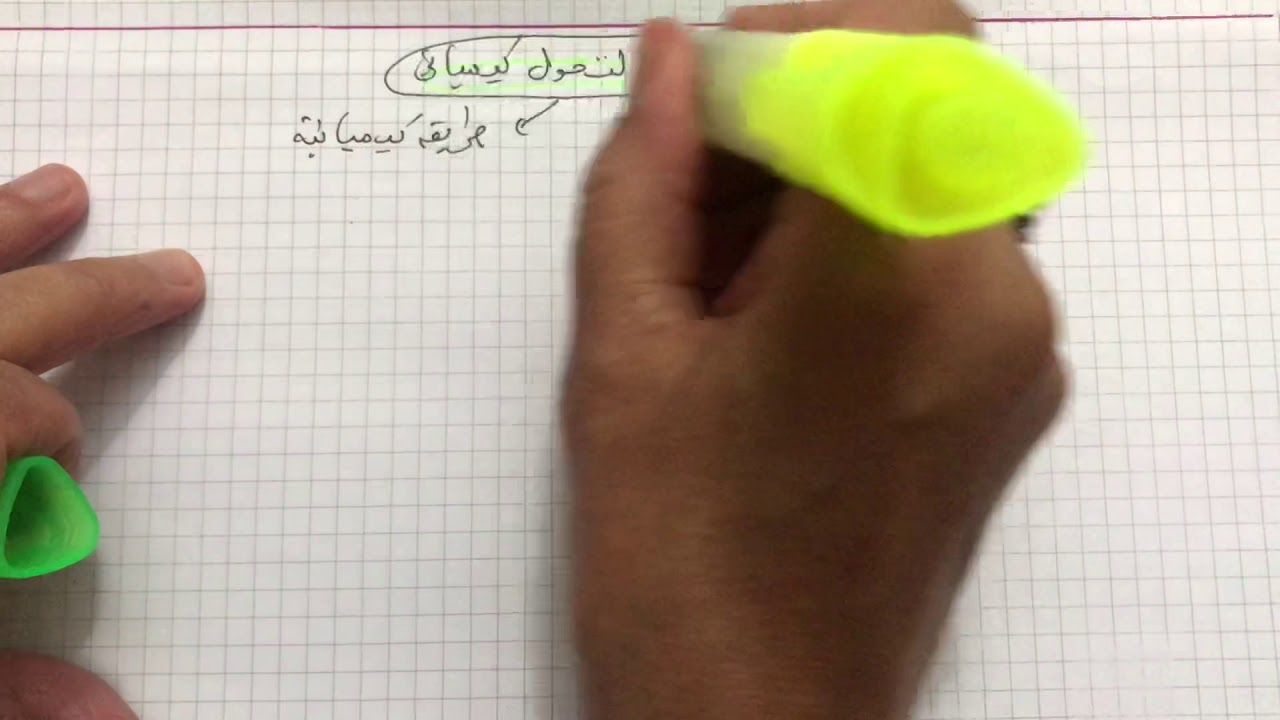 لتحول كيميائي
طريقة كيميائية